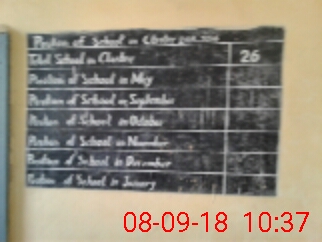 Position of School in Cluster
Total School in Cluster 26
Position of School in May
Position of School in September
Position of School in October
Position of School in November
Position of School in December
Position of School in January
08-09-18 10:37